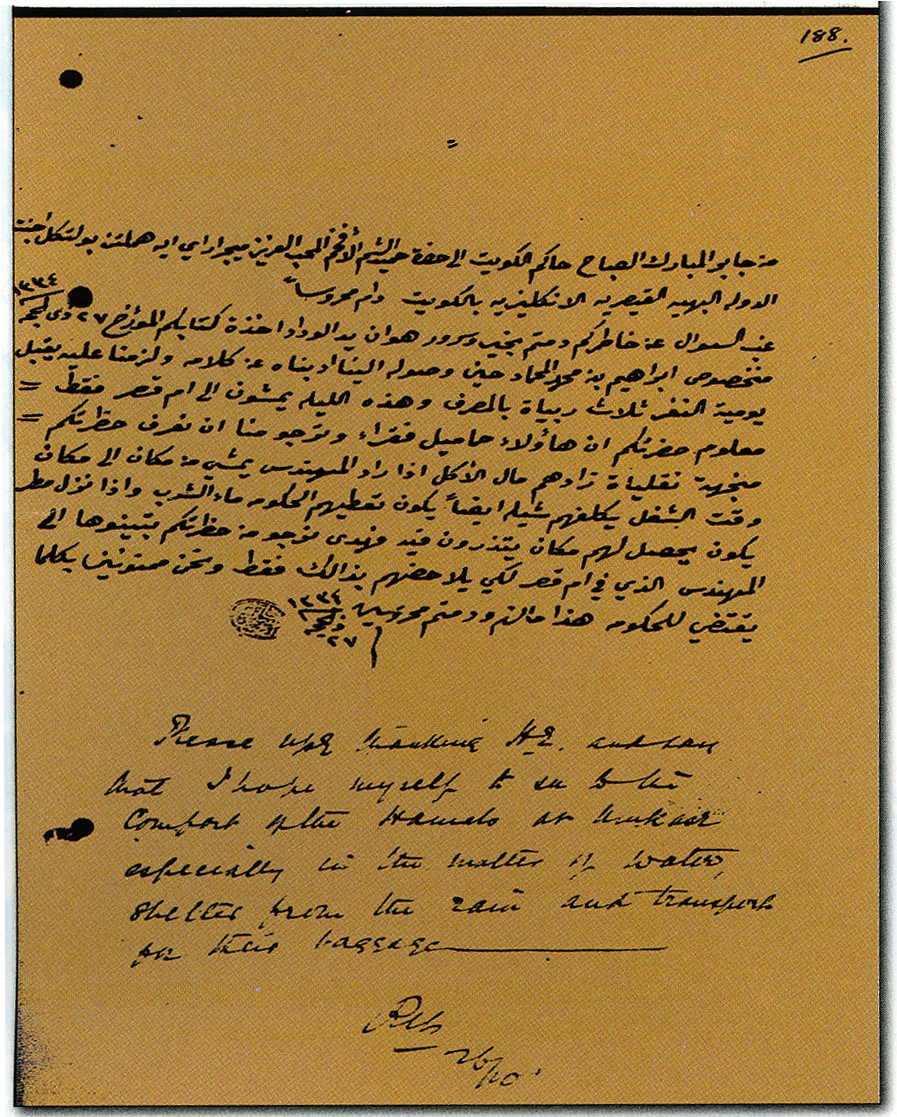 188.
من جابر المبارك الصباح حاكم الكويت الى حضرة حميد الشيم الأفخم المحب العزيز ميجر اراي ايه هملتن بولتكل اجنت
الدوله البهيه القيصريه الانكليزيه بالكويت دام محروساً
غب السوال عن خاطركم دمتم بخير وسرور هو ان بيد الوداد اخذة كتابكم المؤرخ ٢٧ ذي الحجه ١٣٣٤
منخصوص ابراهيم بن محمد حين وصوله الينا ادبناه عن كلامه ولزمنا عليه يقبل
يومية النفر ثلاث ربياة بالمصرف وهذه الليله يمشون الى ام قصر فقط =
معلوم حضرتكم ان هاؤلاء حماميل فقراء ونرجو منا ان نعرف حظرتكم =
منجهة نقلياة زادهم مال الأكل اذا راد المهندس يمشي من مكان الى مكان
وقت الشغل يكلفهم شيله ايضاً يكون تعطيهم الحكومه ماء الشرب واذا نزل مطر
يكون يحصل لهم مكان يتذرون فيه نرجو من حظرتكم تبينوها الى
المهندس الذي في ام قصر لكي يلاحضهم بذالك فقط ونحن ممنونين بكلما
يقتضي للحكومه هذا مالزم ودمتم محروسين ٢٧ ذي الحجه ١٣٣٤
Please reply thanking H.E. and say
that I hope myself to see to the
Comfort of the Hamals at Umkasr
especially in the matter of water,
shelter from the rain and transport
for their baggage
26/10